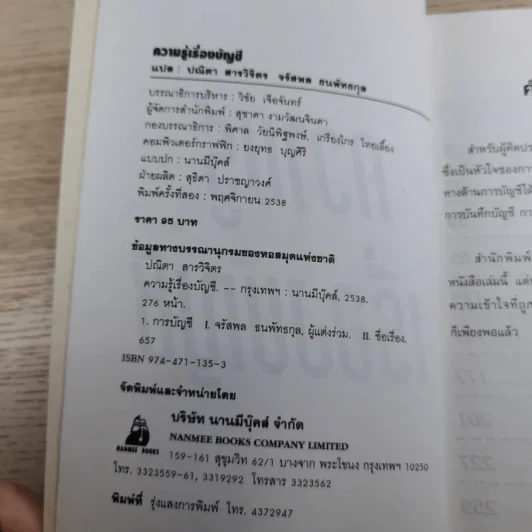 ความรู้เรื่องบัญชี
แปล : ปณิตา สารวิจิตร จรัสพล ธนพัทธกุล
บรรณาธิการบริหาร : วิชัย เจือจันทร์
ผู้จัดการสำนักพิมพ์ : สุชาดา งามวัฒนจินดา
กองบรรณาธิการ : พิศาล วัยนิพิฐพงษ์, เกรียงไกร ไทยเลี้ยง
คอมพิวเตอร์กราฟฟิก : ยงยุทธ บุญศิริ
แบบปก : นานมีบุ๊คส์
ฝ่ายผลิต : สุธิดา ปราชญาวงค์
พิมพ์ครั้งที่สอง : พฤศจิกายน 2538
ราคา 95 บาท
ข้อมูลทางบรรณานุกรมของหอสมุดแห่งชาติ
ปณิตา สารวิจิตร
ความรู้เรื่องบัญชี. -- กรุงเทพฯ : นานมีบุ๊คส์, 2538.
276 หน้า.
1. การบัญชี I. จรัสพล ธนพัทธกุล, ผู้แต่งร่วม. II. ชื่อเรื่อง.
657
ISBN 974-471-135-3
จัดพิมพ์และจำหน่ายโดย
บริษัท นานมีบุ๊คส์ จำกัด
NANMEE BOOKS COMPANY LIMITED
NANMEE BOOKS
159-161 สุขุมวิท 62/1 บางจาก พระโขนง กรุงเทพฯ 10250
โทร. 3323559-61, 3319292 โทรสาร 3323562
พิมพ์ที่ รุ่งแสงการพิมพ์ โทร. 4372947
สำหรับผู้คิดปร
ซึ่งเป็นหัวใจของการ
ทางด้านการบัญชีได้
การบันทึกบัญชี กา
สำนักพิมพ์
หนังสือเล่มนี้ แต่
ความเข้าใจที่ถูก
ก็เพียงพอแล้ว